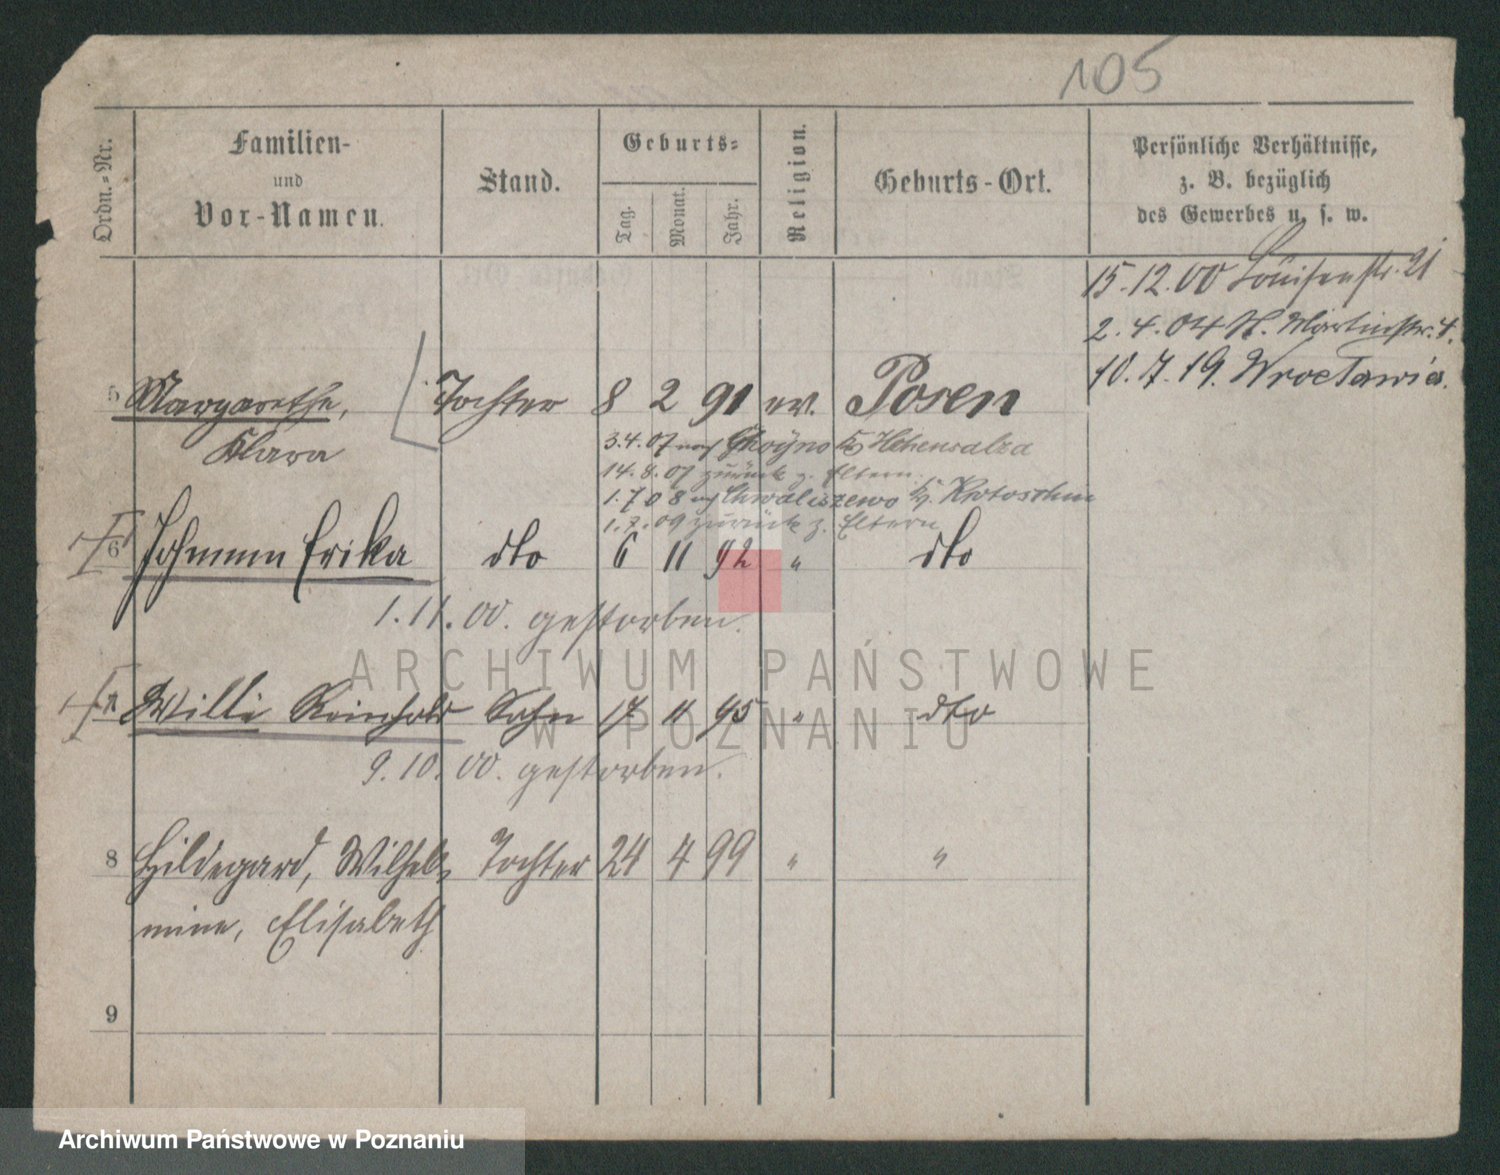 105
Ordn.-Nr.
Familien-
und
Vor-Namen.
Stand.
Geburts-
Tag.
Monat.
Jahr.
Religion.
Geburts-Ort.
Persönliche Verhältnisse,
z. B. bezüglich
des Gewerbes u. s. w.
15.12.00 Louisenstr. 21
2.4.04 St. Martinstr. 4.
10.7.19. Wrocławia.
5 Margarethe, Tochter 8 2 91 ev. Posen
Klara
3.4.07 nach Hohensalza
14.8.07 zurück z. Eltern.
1.7.08 Chwaliszewo Kr. Krotoschin
1.7.09 zurück z. Eltern
6 Johanna Erika dto 6 11 92 " dto
1.11.00. gestorben.
7 Willi Reinhold Sohn 17 11 95 " dto
9.10.00. gestorben.
8 Hildegard, Wilhel- Tochter 24 4 99 " "
mine, Elisabeth
9
ARCHIWUM PAŃSTWOWE
W POZNANIU
Archiwum Państwowe w Poznaniu